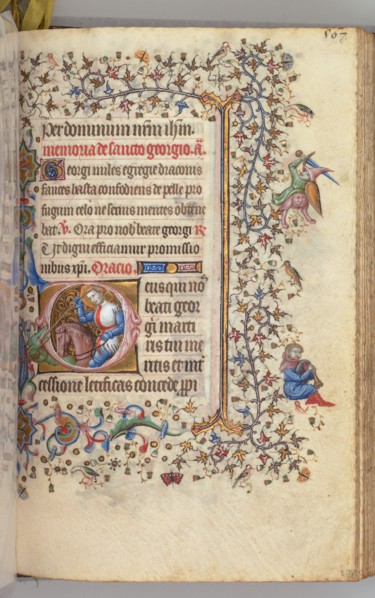 507
Per dominum nr̄m ih̄m.
memoria de sancto georgio. a͞.
Georgi miles egregie draconis
fauces hasta confodiens de pelle pro
fugum celo ne senus mentes obtene
bat. V. Ora pro nob̄ beate georgi R
Vt digni efficiamur promissio
nibus xp̄i. Oracio.
Deus qui no
beati geor
gii marti
ris tui me
ritis et int̄
cessione letificas concede pp̄i